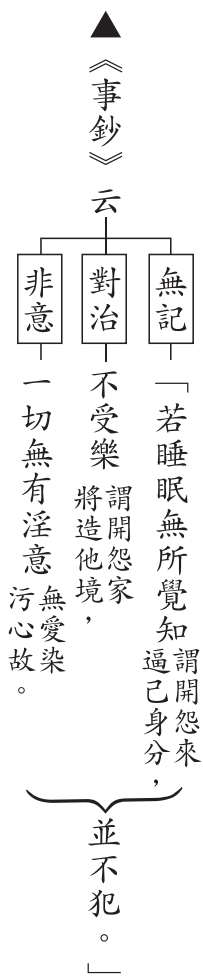 ▲《事鈔》云
無記
「若睡眠無所覺知
謂開怨來
逼己身分，
對治
不受樂
謂開怨家
將造他境，
非意
一切無有淫意
無愛染
污心故。
並不犯。」